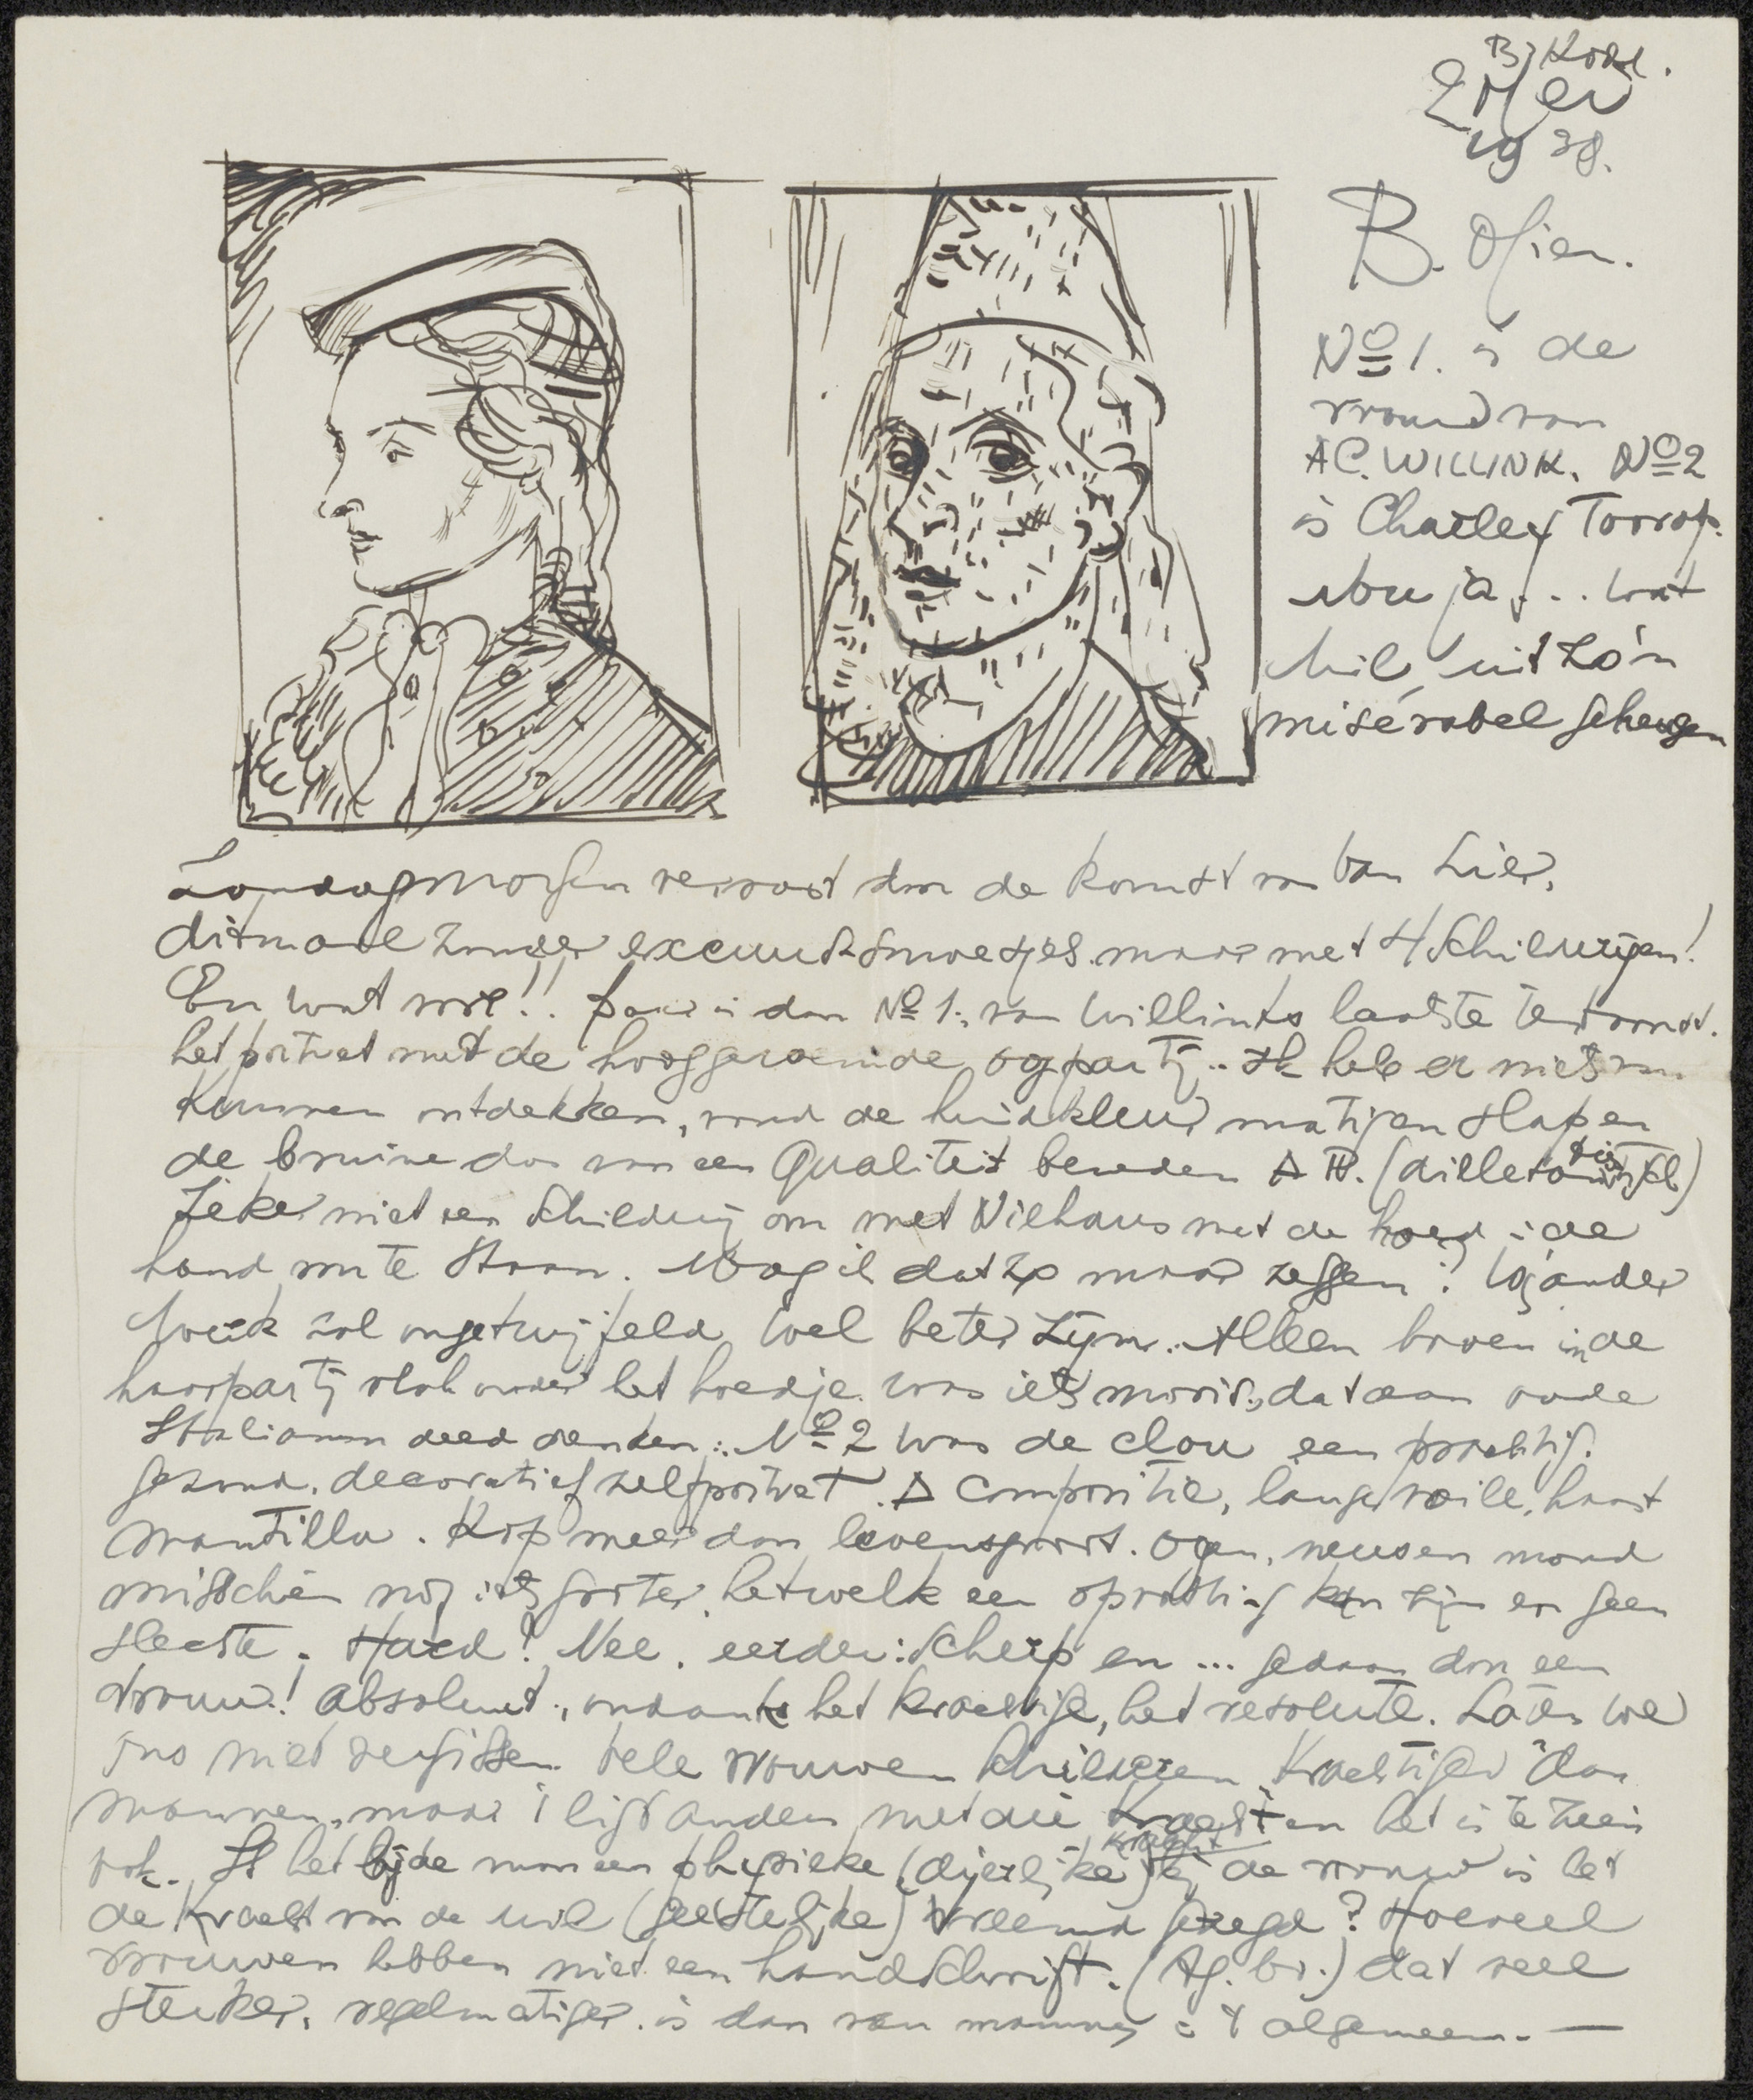 2 Mei
1938.
B. Ofien.
Nº 1. is de
vrouw van
AC. WILLINK. Nº 2
is Charley Toorop.
Nou ja... wat
wil, uit zo'n
misérabel geheugen
Zondagmorgen verrast door de komst van van Lier,
ditmaal zonder excuus-smoesjes maar met 4 Schilderijen!
En wat voor!! Nº 1. van Willinks laatste tentoonst.
het portret met de hooggeroemde oogpartij.. Ik heb er niets van
kunnen ontdekken, vond de huidkleur matig en slap en
de bruine das van een Qualiteit beneden
Zeker niet een Schilderij om met de hoed in de
hand voor te staan. Mag ik dat zo maar zeggen? Zijn ander
werk zal ongetwijfeld wel beter zijn. Alleen boven in de
haarpartij vlak onder het hoedje was iets moois, dat aan oude
Italianen deed denken.. Nº 2 was de clou een prachtig.
gezond. decoratief zelfportret. Δ Compositie, lange voile, haast
mantilla. Kop meer dan levensgroot. Ogen, neus en mond
misschien nog iets groter, hetwelk een opvatting kan zijn en geen
slechte. Hard? Nee. eerder: Scherp en ... gedaan door een
vrouw! Absoluut, ondanks het krachtige, het resolute. Laten we
ons niet vergissen. Vele vrouwen schilderen krachtiger dan
mannen, maar 't ligt anders met die kracht en het is te zien
ook. Is het bij de man een physieke (dierlijke) kracht bij de vrouw is het
de kracht van de wil (geestelijke) Vreemd gezegd? Hoeveel
vrouwen hebben niet een handschrift. (Ag. br.) dat veel
sterker, regelmatiger is dan van mannen in 't algemeen. —